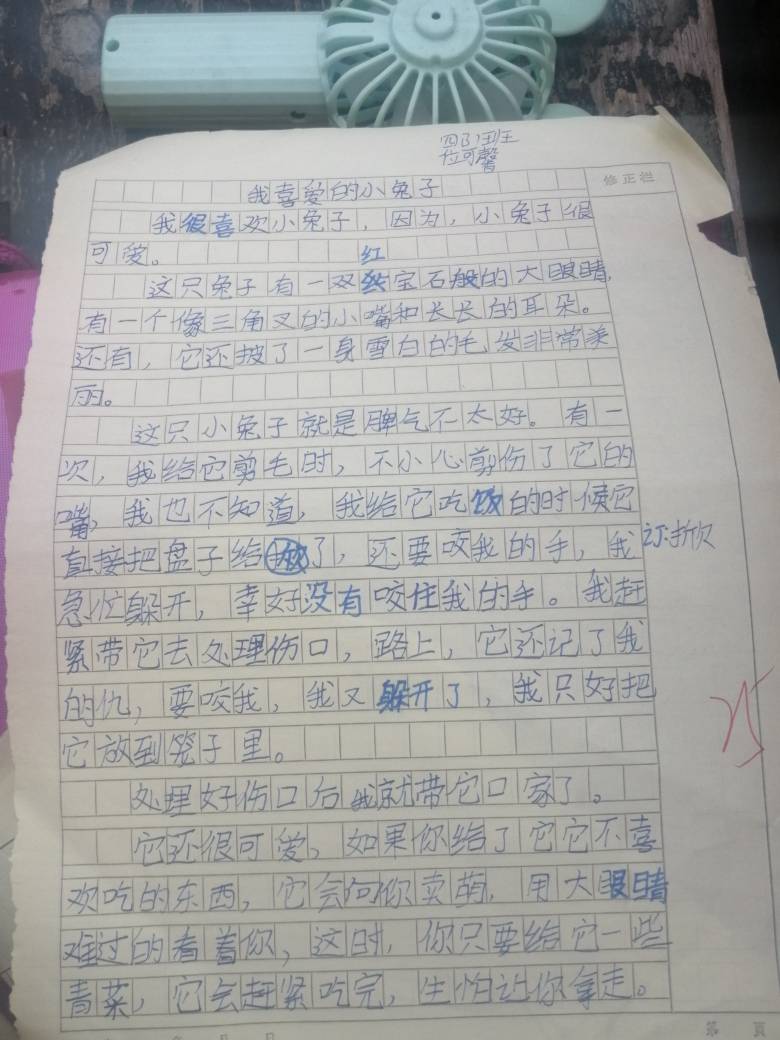 四（3）班
位可馨
修正栏
我喜爱的小兔子
我很喜欢小兔子，因为，小兔子很
可爱。
红
这只兔子有一双宝石般的大眼睛，
有一个像三角叉的小嘴和长长的耳朵。
还有，它还披了一身雪白的毛发非常美
丽。
这只小兔子就是脾气不太好。有一
次，我给它剪毛时，不小心剪伤了它的
嘴，我也不知道，我给它吃饭的时候它
直接把盘子给了，还要咬我的手，我
急忙躲开，幸好没有咬住我的手。我赶
紧带它去处理伤口，路上，它还记了我
的仇，要咬我，我又躲开了，我只好把
它放到笼子里。
处理好伤口后我就带它口家了。
它还很可爱，如果你给了它它不喜
欢吃的东西，它会向你卖萌，用大眼睛
难过的看着你，这时，你只要给它一些
青菜，它会赶紧吃完，生怕让你拿走。
第 页